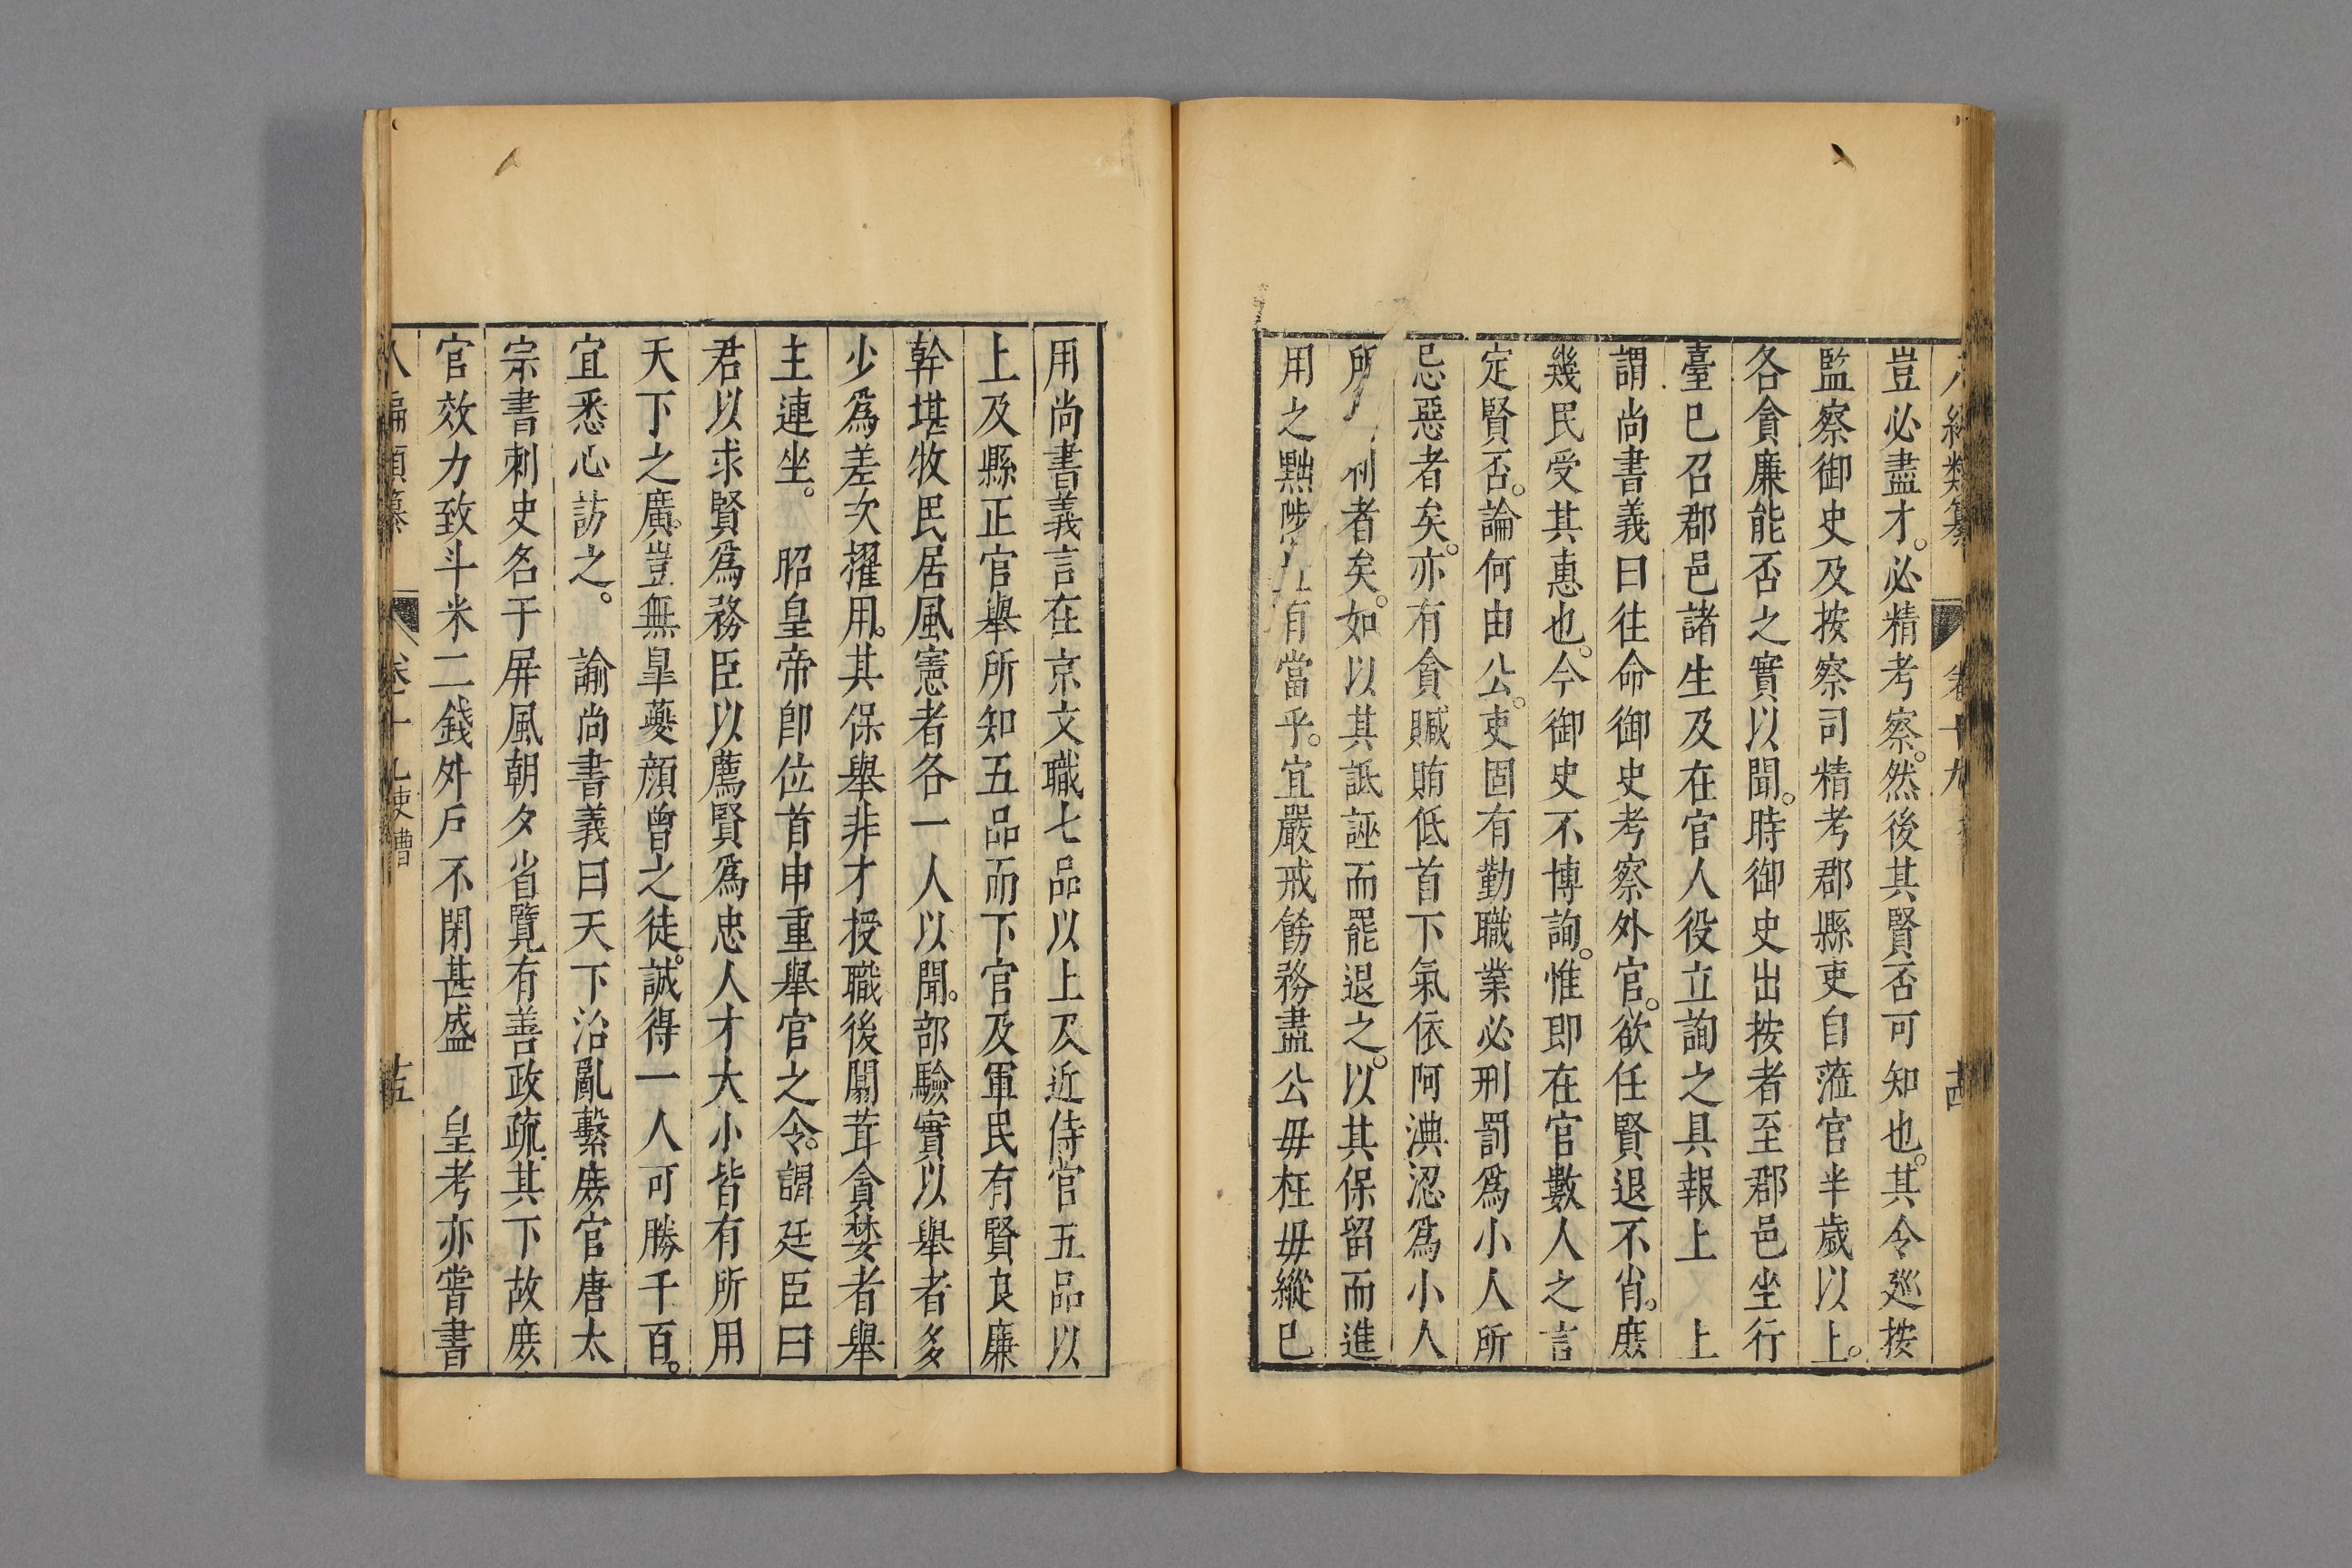 豈必盡才必精考察然後其賢否可知也其令廵按
監察御史及按察司精考郡縣吏自蒞官半歲以上
各貪廉能否之實以聞時御史出按者至郡邑坐行
臺已召郡邑諸生及在官人役立詢之具報上　上
謂尚書義曰往命御史考察外官欲任賢退不肖庻
幾民受其惠也今御史不博詢惟即在官數人之言
定賢否論何由公吏固有勤職業必刑罰爲小人所
忌惡者矣亦有貪贓賄低首下氣依阿淟涊爲小人
所　利者矣如以其詆誣而罷退之以其保留而進
用之黜陟有當乎宜嚴戒飭務盡公毋枉毋縱巳
用尚書義言在京文職七品以上及近侍官五品以
上及縣正官舉所知五品而下官及軍民有賢良廉
幹堪牧民居風憲者各一人以聞部驗實以舉者多
少爲差次擢用其保舉非才授職後闒茸貪婪者舉
主連坐　昭皇帝卽位首申重舉官之令謂廷臣曰
君以求賢爲務臣以薦賢爲忠人才大小皆有所用
天下之廣豈無臯夔顔曾之徒誠得一人可勝千百
宜悉心訪之　諭尚書義曰天下治亂繫庻官唐太
宗書刺史名于屏風朝夕省覽有善政疏其下故庻
官效力致斗米二錢外戶不閉甚盛　皇考亦嘗書
八編類纂　卷十九吏曹　十五